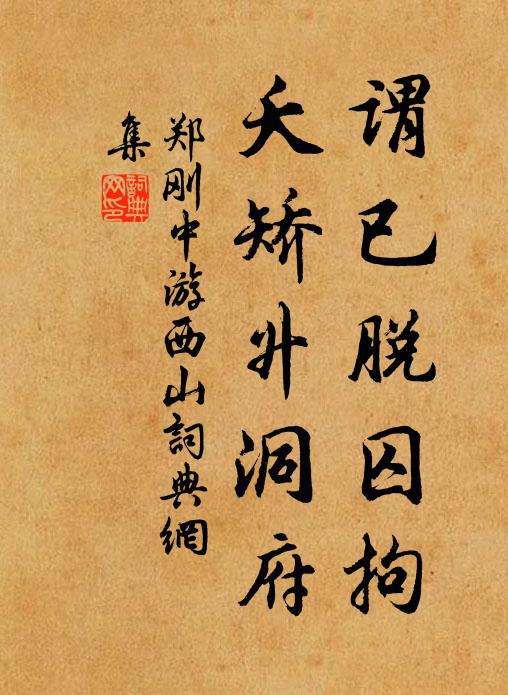 謂已脱囚拘
夭矯升洞府
郑刚中游西山詞典網
集
詞典
网印